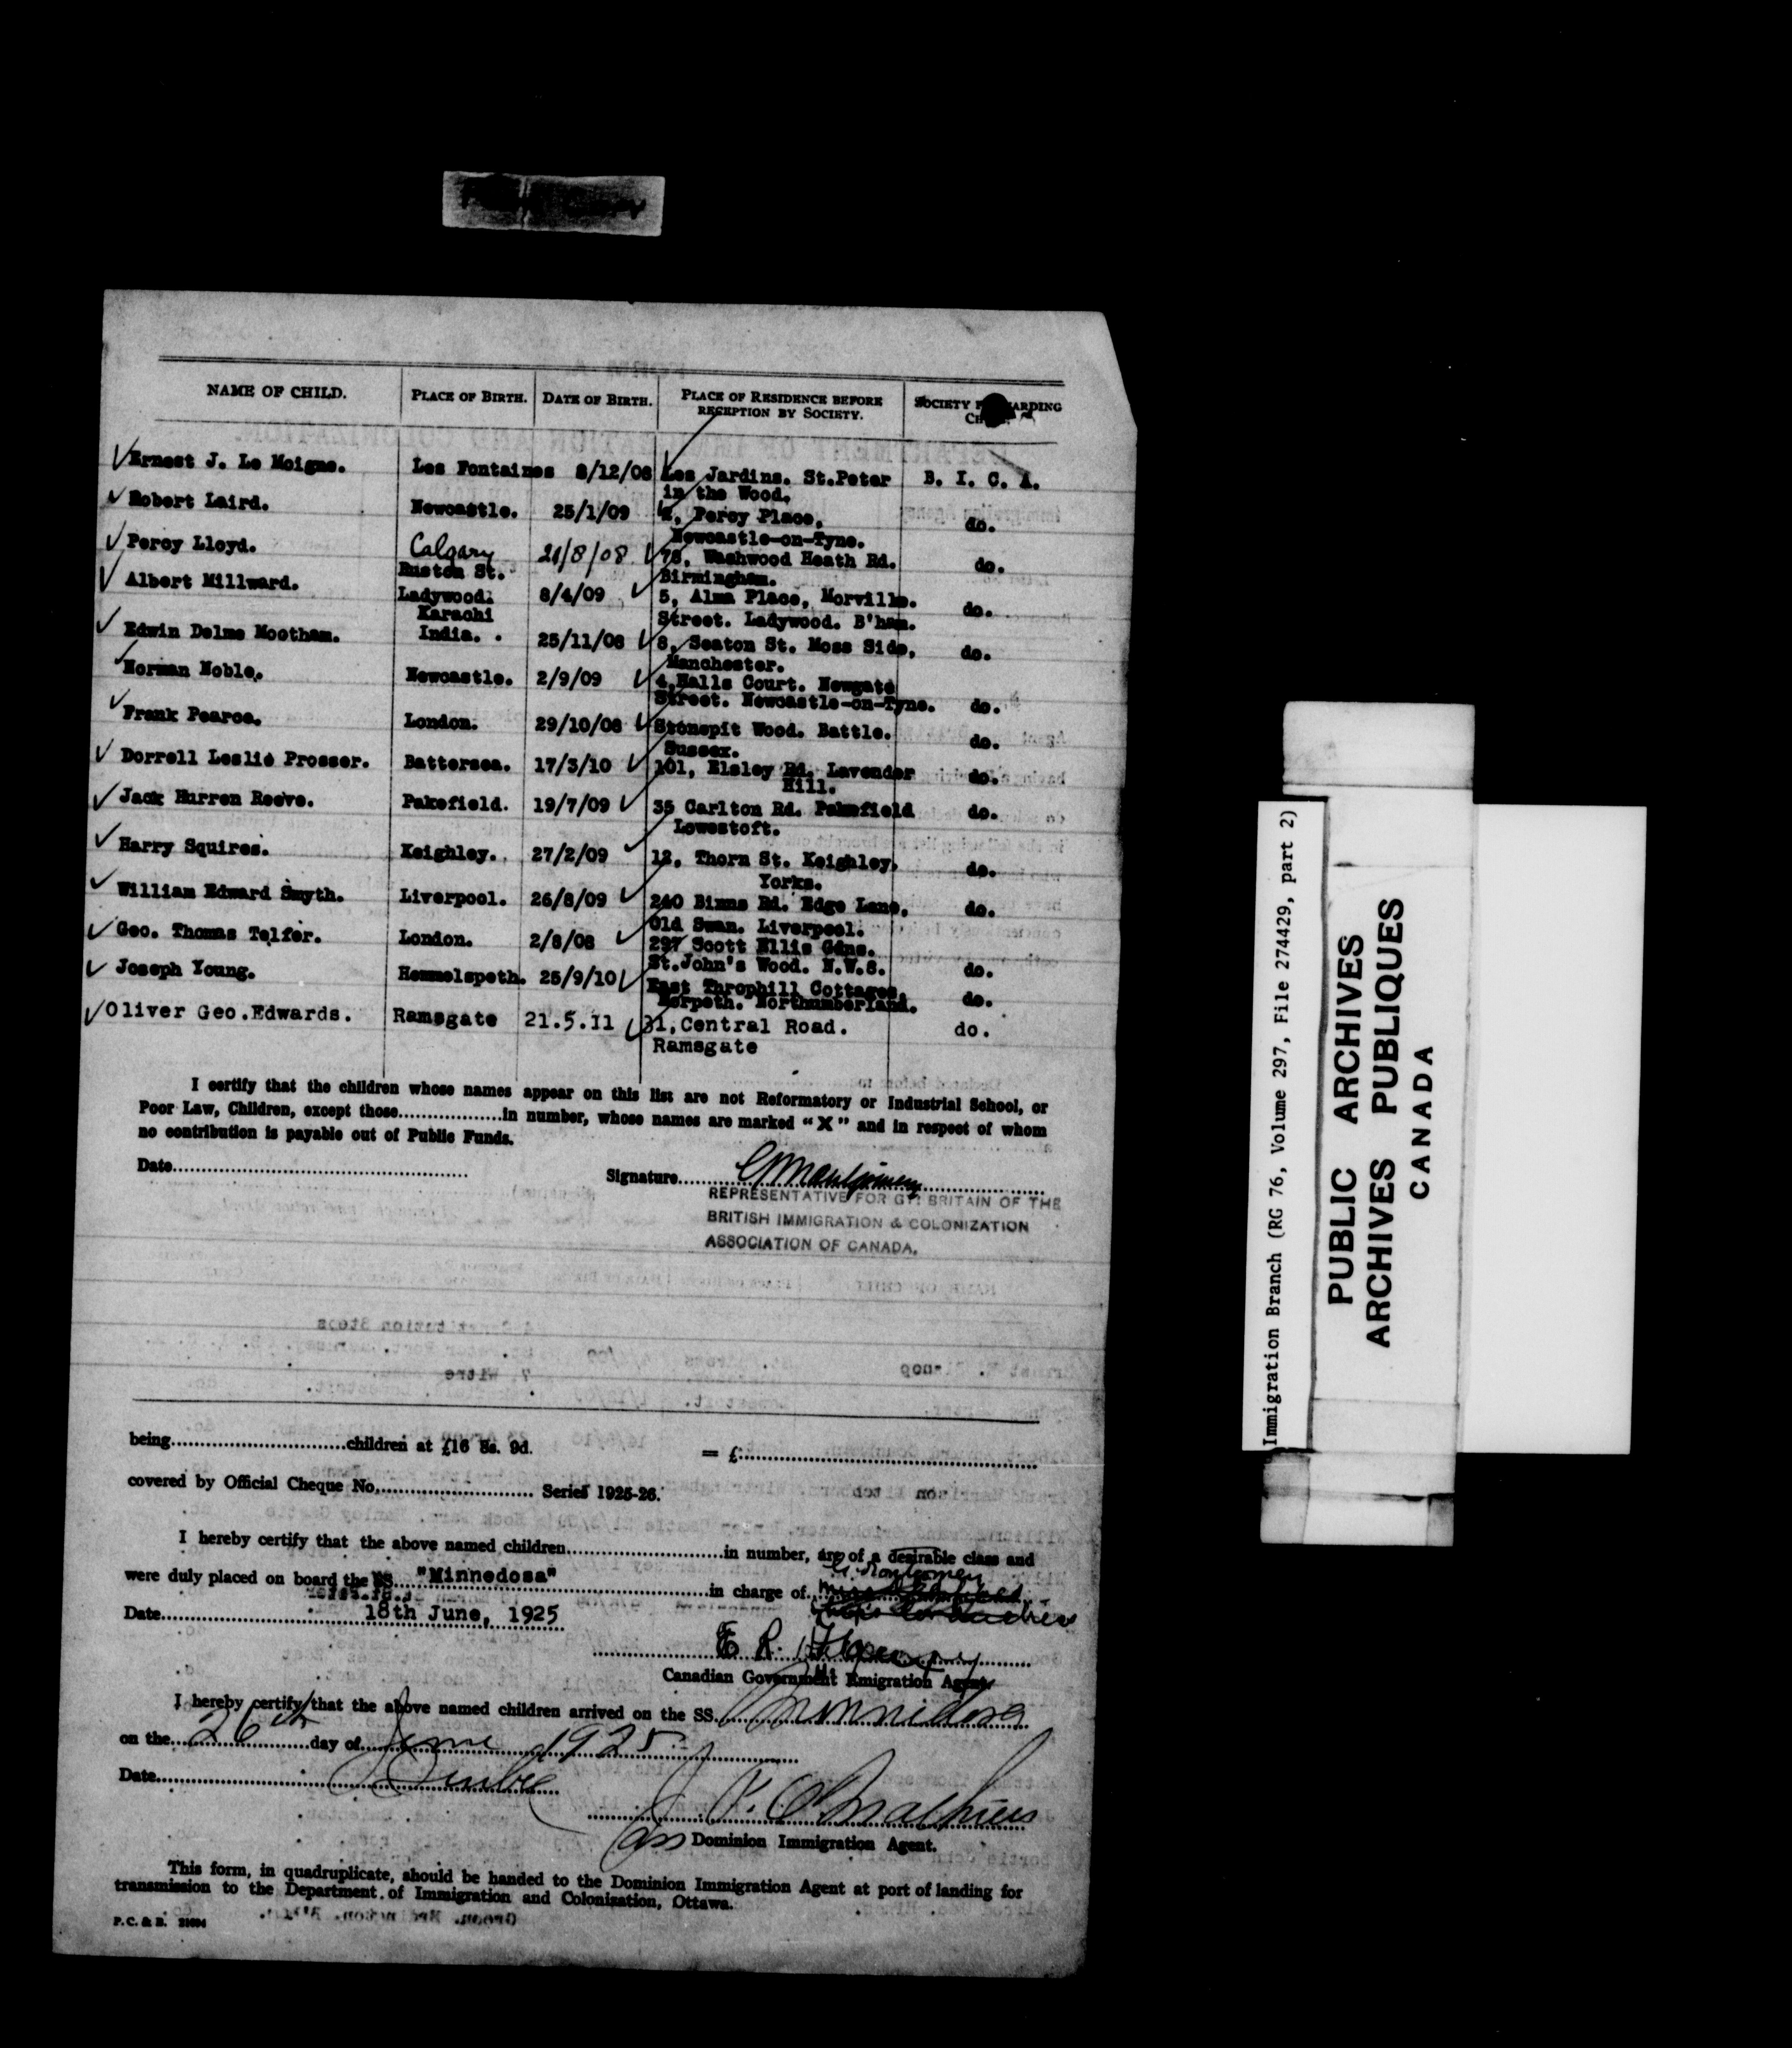 NAME OF CHILD. PLACE OF BIRTH. DATE OF BIRTH. PLACE OF RESIDENCE BEFORE RECEPTION BY SOCIETY. SOCIETY
Ernest J. Le Moigne. Les Fontaines 8/12/08 Les Jardins. St.Peter B. I. C. A.
in the Wood.
Robert Laird. Newcastle. 25/1/09 2, Percy Place, do.
Newcastle-on-Tyne.
Percy Lloyd. Calgary 21/8/08 78, Washwood Heath Rd. do.
Birmingham.
Albert Millward. Ruston St. Ladywood. 8/4/09 5, Alma Place, Morville. do.
Street. Ladywood. B'ham.
Edwin Delme Mootham. Karachi India. 25/11/08 8, Seaton St. Moss Side, do.
Manchester.
Norman Noble. Newcastle. 2/9/09 4,Halls Court. Newgate
Street. Newcastle-on-Tyne. do.
Frank Pearce. London. 29/10/08 Stonepit Wood. Battle. do.
Sussex.
Dorrell Leslie Prosser. Battersea. 17/3/10 101, Elsley Rd. Lavender do.
Hill.
Jack Hurren Reeve. Pakefield. 19/7/09 35 Carlton Rd. Pakefield do.
Lowestoft.
Harry Squires. Keighley. 27/2/09 12, Thorn St. Keighley, do.
Yorks.
William Edward Smyth. Liverpool. 26/8/09 240 Binns Rd. Edge Lane, do.
Old Swan. Liverpool.
Geo. Thomas Telfer. London. 2/8/08 297 Scott Ellis Gdns.
St.John's Wood. N.W.8. do.
Joseph Young. Hemmelspeth. 25/9/10 East Throphill Cottages,
Morpeth. Northumberland. do.
Oliver Geo.Edwards. Ramsgate 21.5.11 31,Central Road. do.
Ramsgate
I certify that the children whose names appear on this list are not Reformatory or Industrial School, or
Poor Law, Children, except those..................in number, whose names are marked "X" and in respect of whom
no contribution is payable out of Public Funds.
Date.................... Signature.......... G Montgomery
REPRESENTATIVE FOR GT. BRITAIN OF THE
BRITISH IMMIGRATION & COLONIZATION
ASSOCIATION OF CANADA.
being..............................children at £16 8s. 9d. = £..................
covered by Official Cheque No........................... Series 1925-26.
I hereby certify that the above named children...........................in number, are of a desirable class and
were duly placed on board the SS. "Minnedosa" in charge of G. Montgomery
Date 18th June, 1925
Canadian Government Emigration Agent.
I hereby certify that the above named children arrived on the SS. Minnedosa
on the 26th day of June 1925
Date Quebec
Dominion Immigration Agent.
This form, in quadruplicate, should be handed to the Dominion Immigration Agent at port of landing for
transmission to the Department of Immigration and Colonization, Ottawa.
P.C. & B.
Immigration Branch (RG 76, Volume 297, File 274429, part 2)
PUBLIC ARCHIVES
ARCHIVES PUBLIQUES
CANADA